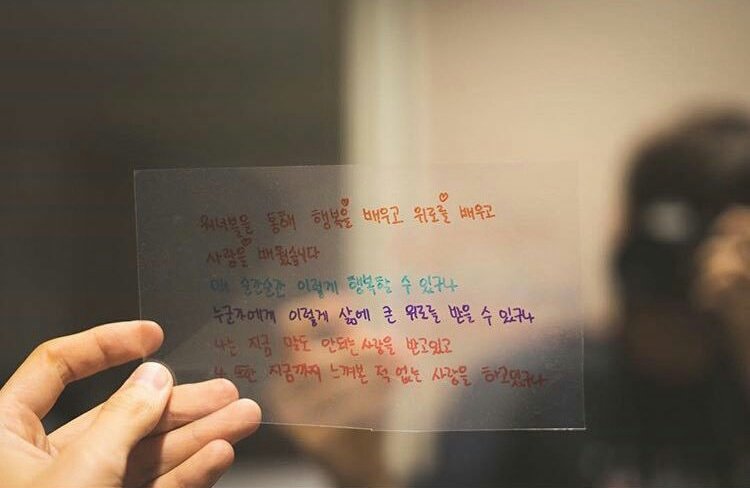 워너블을 통해 행복을 배우고 위로를 배우고
사랑을 배웠습니다
매 순간순간 이렇게 행복할 수 있구나
누군가에게 이렇게 삶에 큰 위로를 받을 수 있구나
나는 지금 말도 안되는 사랑을 받고있고
나 또한 지금까지 느껴본 적 없는 사랑을 하고있구나